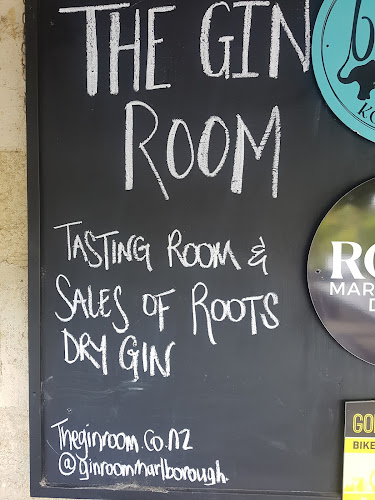 THE GIN
ROOM
TASTING ROOM &
SALES OF ROOTS
DRY GIN
Theginroom.co.nz
@ginroommarlborough